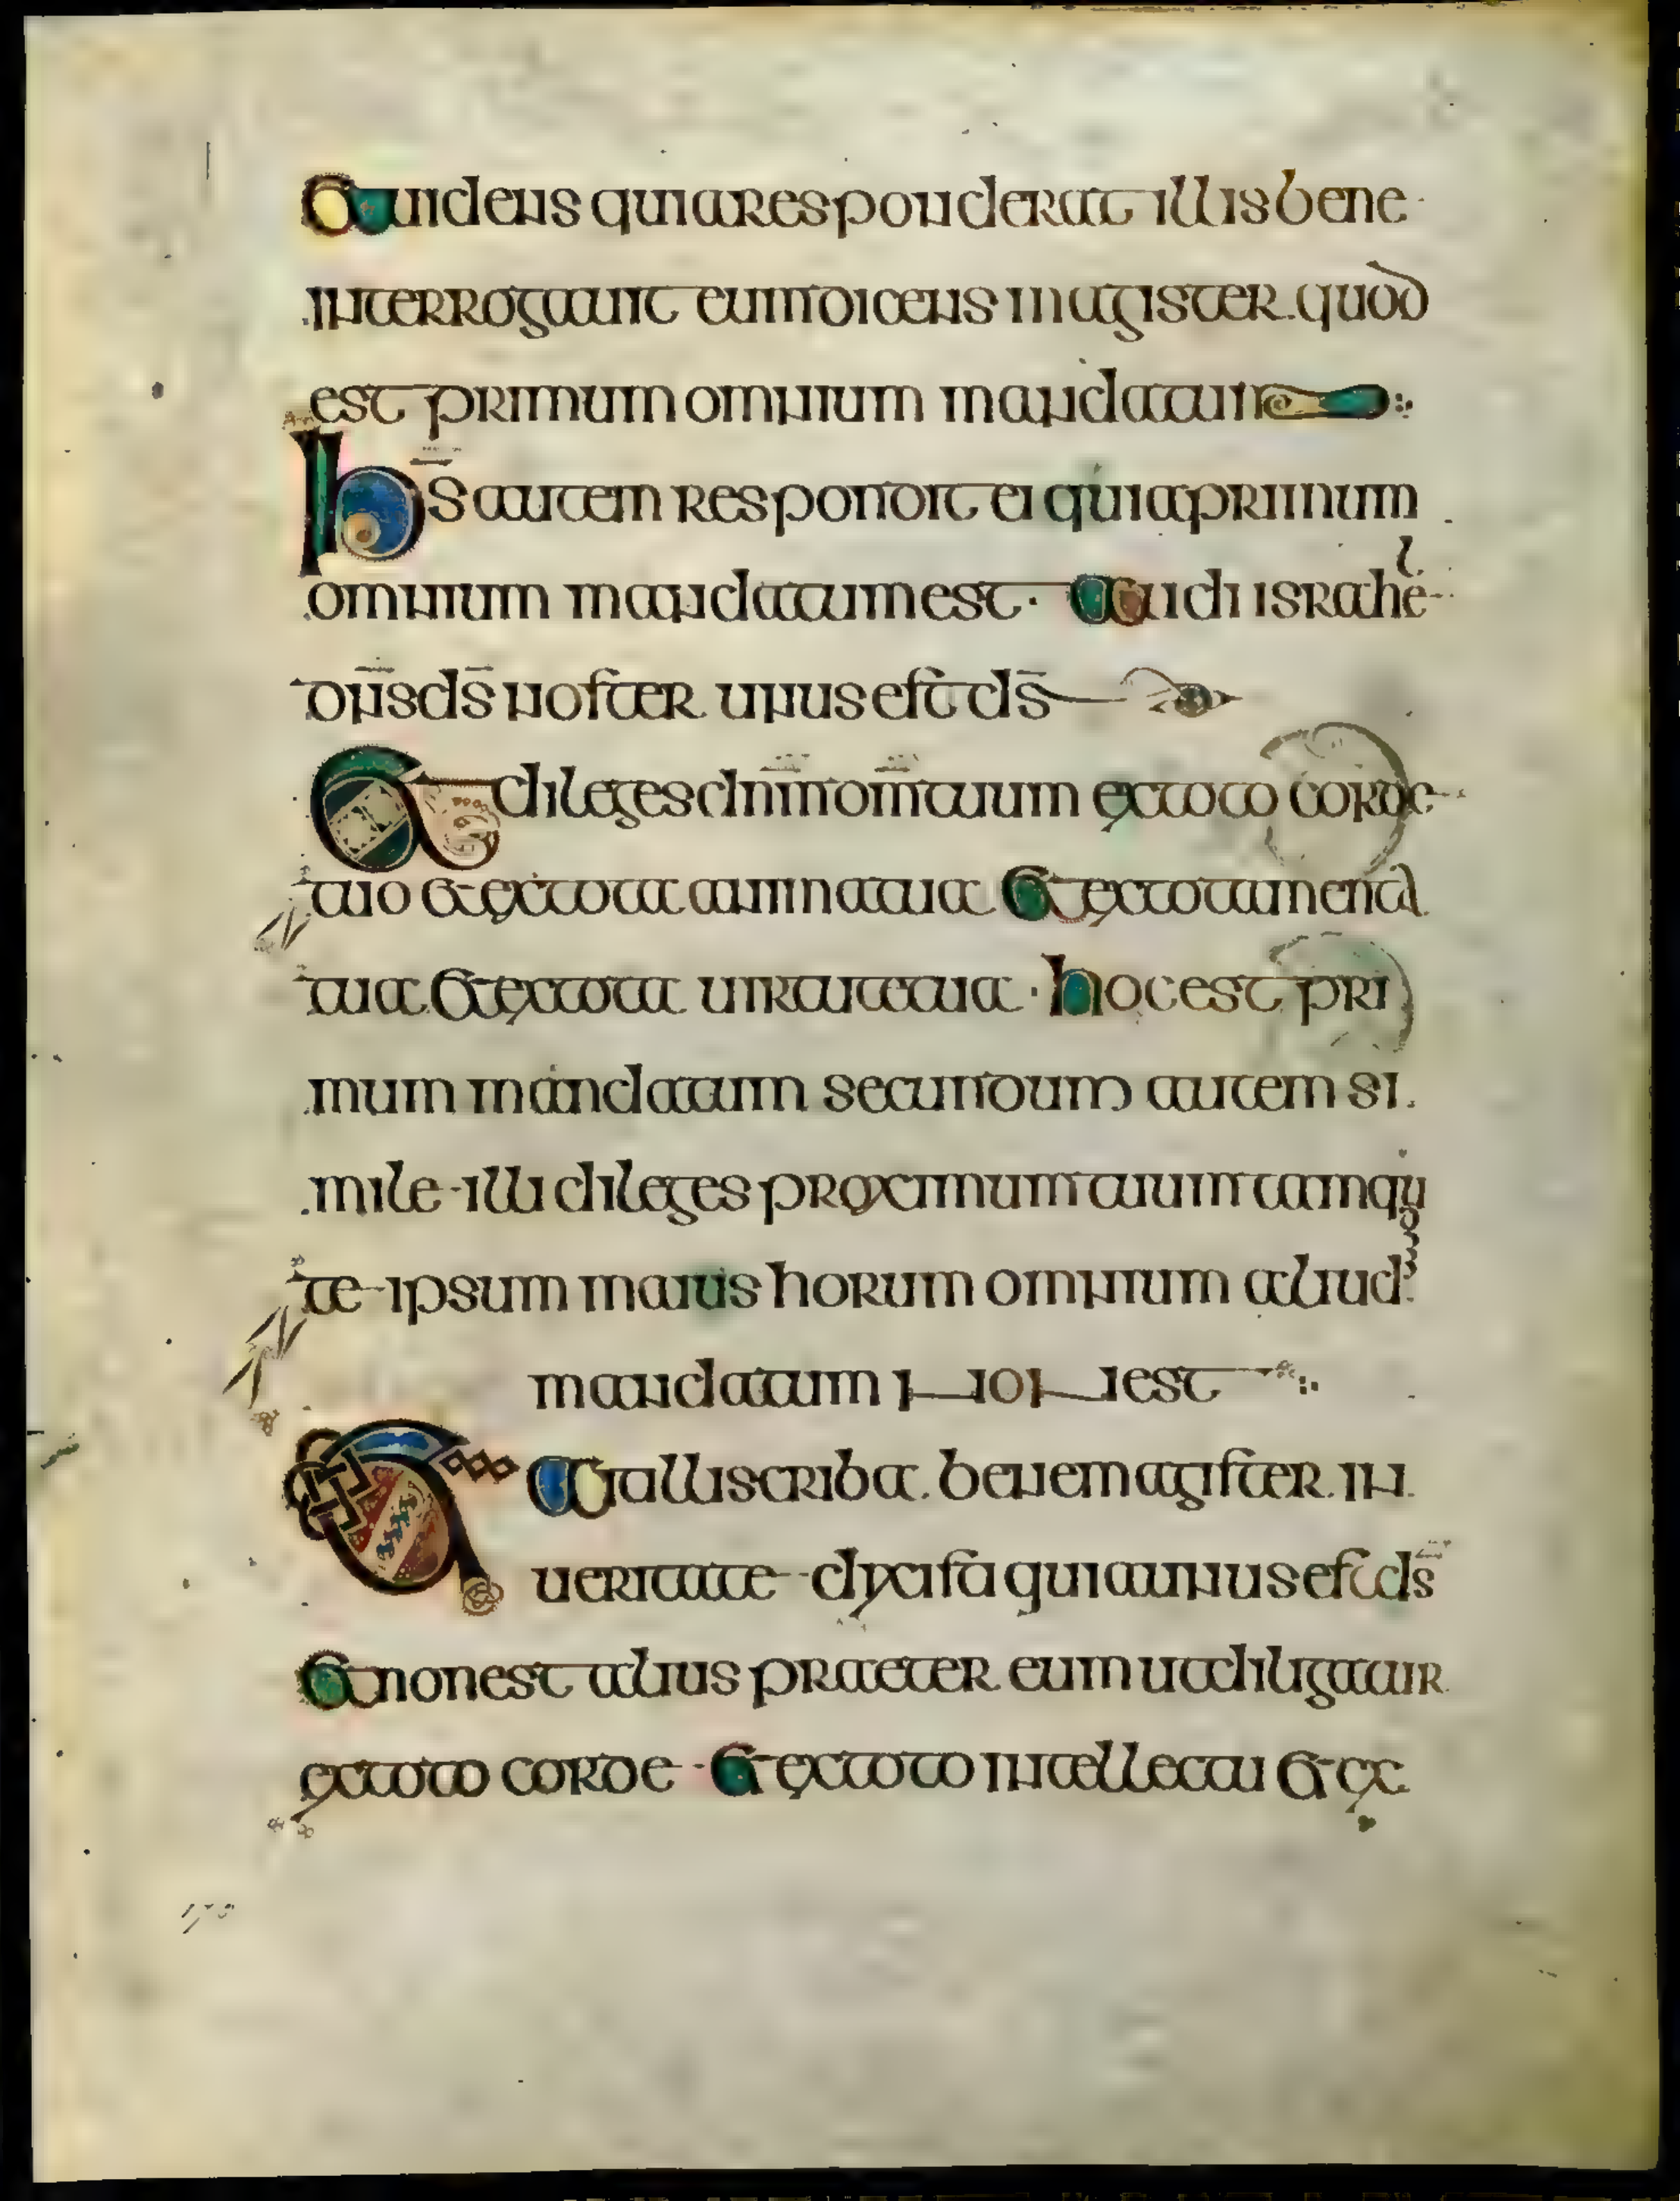 Et uidens quia responderat illis bene
interrogauit eum dicens magister quod
est primum omnium mandatum
ihs autem respondit ei quia primum
omnium mandatum est · Audi israhel
dns ds noster unus est ds
Et diliges dnm dm tuum ex toto corde
tuo et ex tota anima tua Et ex tota mente
tua Et ex tota uirtute tua · hoc est pri
mum mandatum secundum autem si
mile illi diliges proximum tuum tamqu
te ipsum maius horum omnium aliud
mandatum non est
Et Ait illi scriba. bene magister. in
ueritate dixisti quia unus est ds
Et non est alius praeter eum ut diligatur
ex toto corde · Et ex toto intellectu Et ex